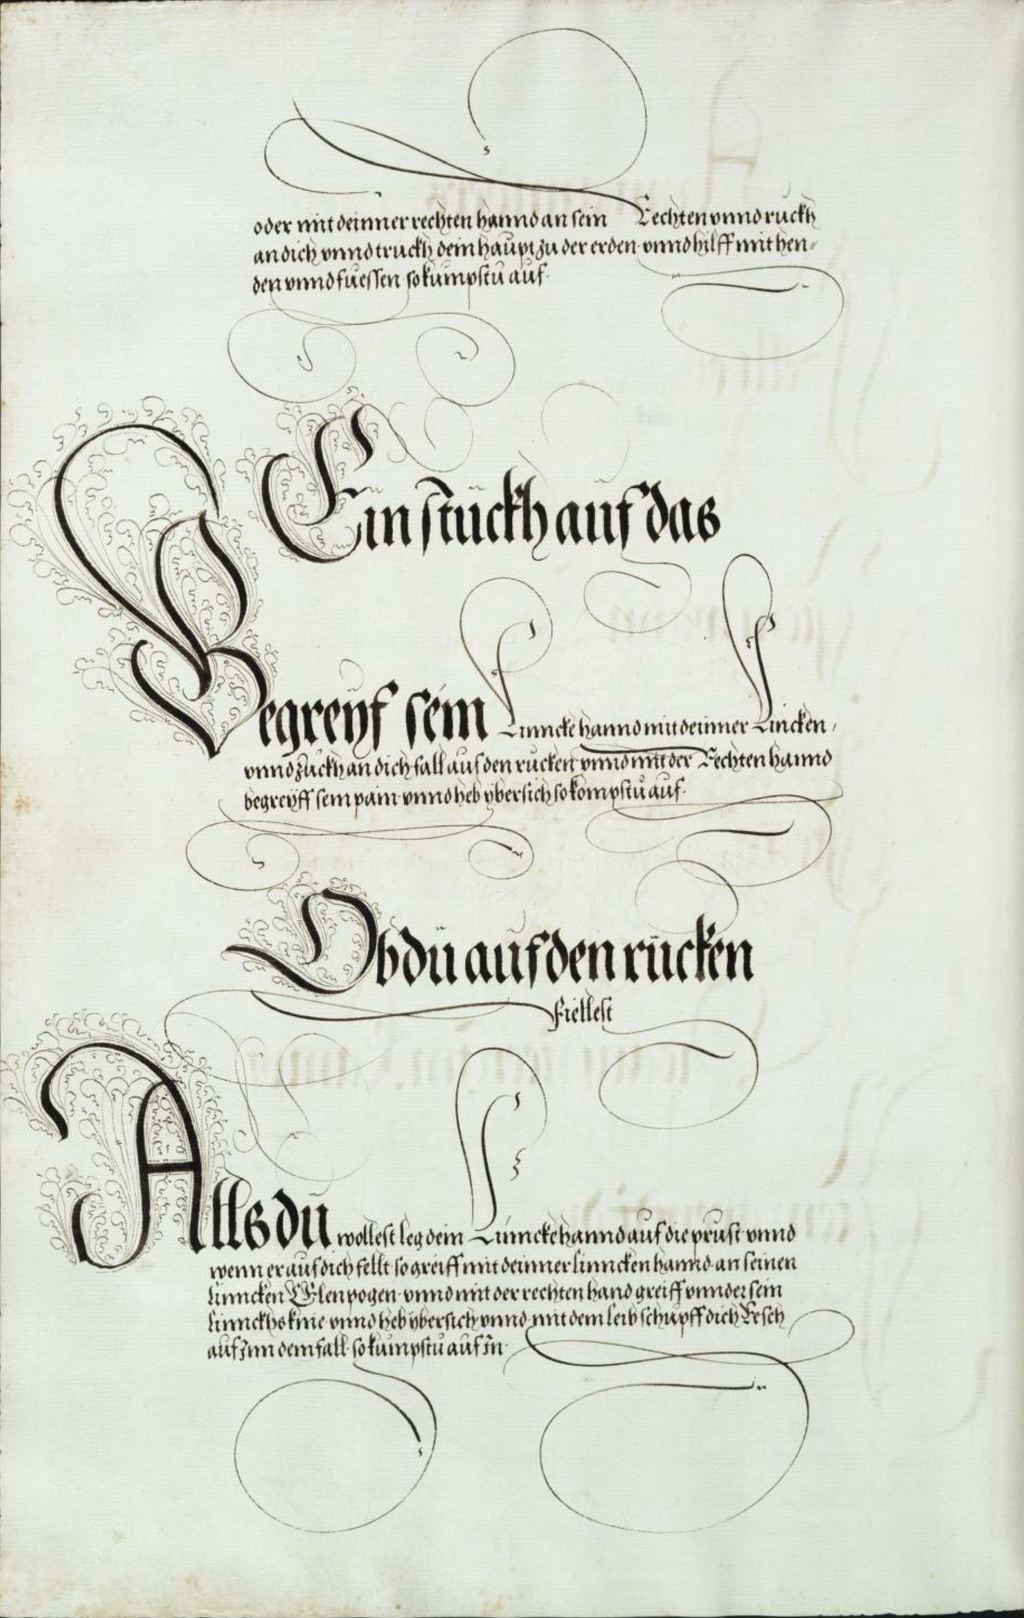 oder mit deinner rechten hannd an sein Rechten vnnd ruckh
an dich vnnd truckh dein haupt zu der erden vnnd hilff mit hen-
den vnnd fuessen so kumpstu auf.
Ein stückh auf das
Begreyf sein Linncke hannd mit deinner Lincken,
vnnd zuckh an dich fall auf den rucken vnnd mit der Rechten hannd
begreyff sem pain vnnd heb ybersich so kompstu auf.
Ob dü auf den rücken
fiellest
Alls dü wollest leg dein Linncke hannd auf die prust vnnd
wenn er auf dich fellt so greiff mit deinner linncken hannd an seinen
linncken Elenpogen vnnd mit der rechten hand greiff vnnder sein
linnckhs knie vnnd heb ybersich vnnd mit dem leib schupff dich Resch
auf Inn dem fall so kumpstu auf In.